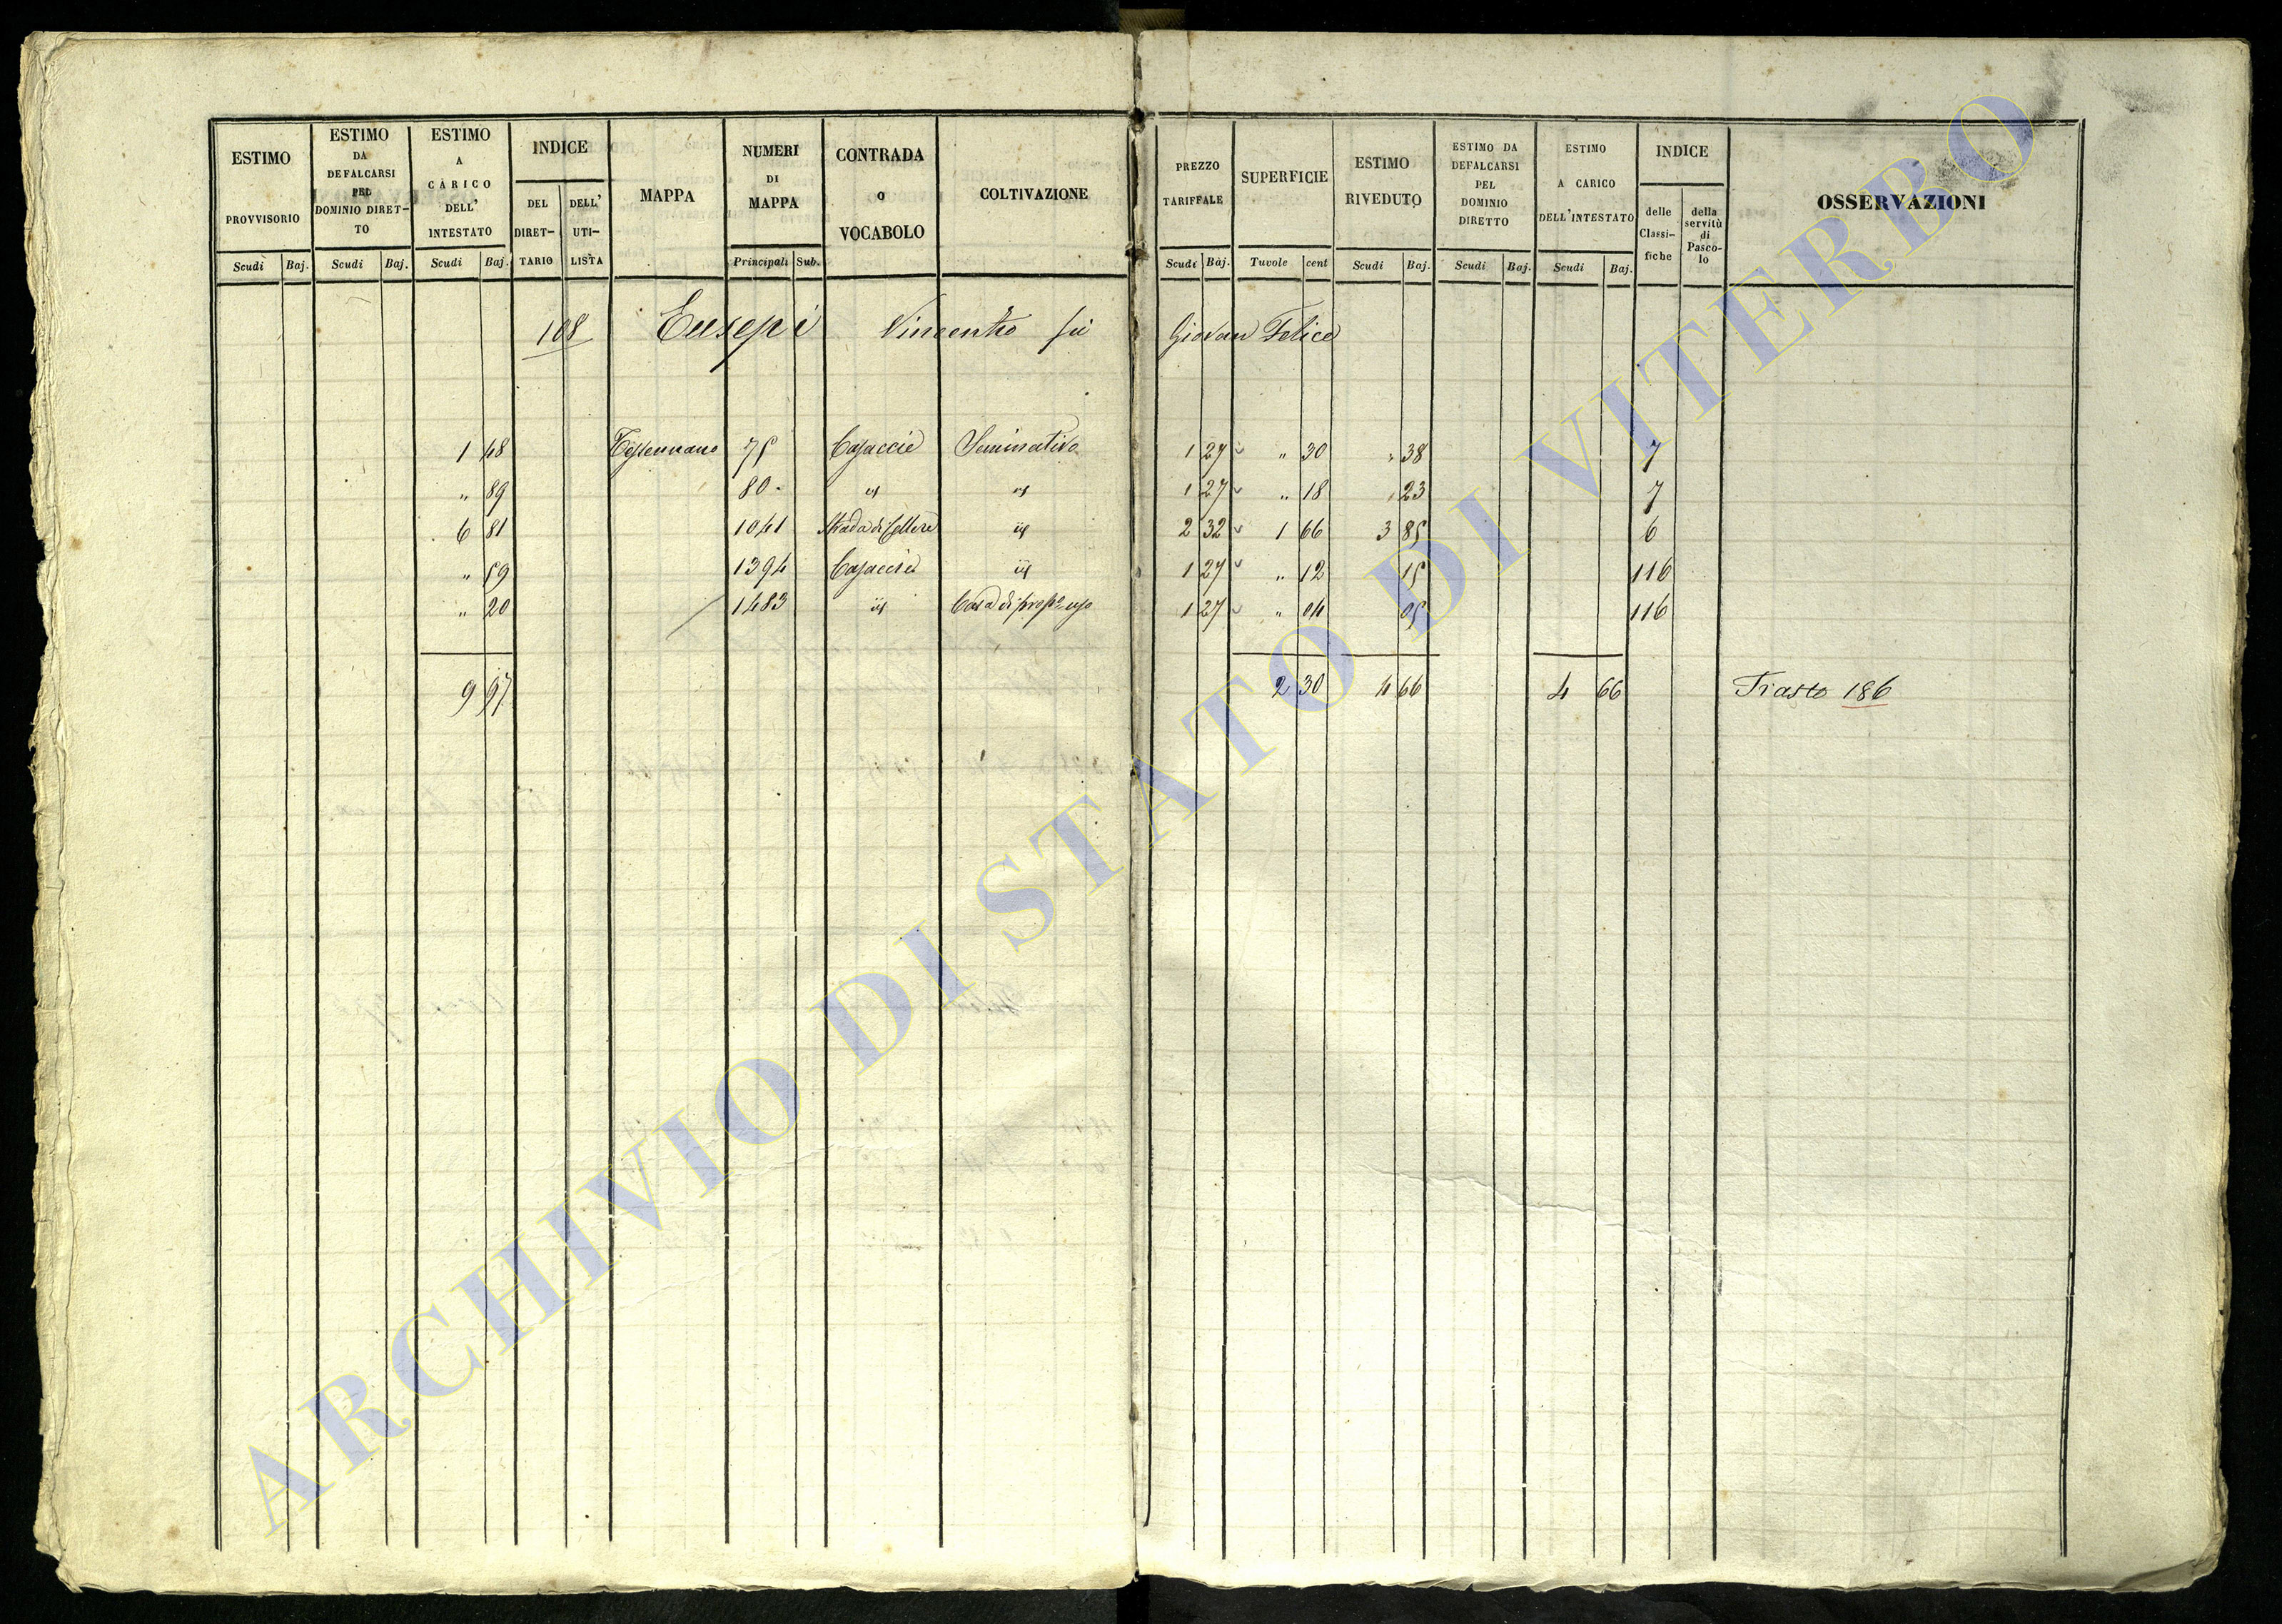 ESTIMO PROVVISORIO Scudi Baj.
ESTIMO DA DEFALCARSI PEL DOMINIO DIRET-TO Scudi Baj.
ESTIMO A CARICO DELL' INTESTATO Scudi Baj.
INDICE DEL DIRET-TARIO DELL' UTI-LISTA
MAPPA
NUMERI DI MAPPA Principali Sub.
CONTRADA o VOCABOLO
COLTIVAZIONE
PREZZO TARIFFALE Scudi Baj.
SUPERFICIE Tavole cent
ESTIMO RIVEDUTO Scudi Baj.
ESTIMO DA DEFALCARSI PEL DOMINIO DIRETTO Scudi Baj.
ESTIMO A CARICO DELL'INTESTATO Scudi Baj.
INDICE delle Classi-fiche della servitù di Pasco-lo
OSSERVAZIONI
108 Eusepi Vincenzo fù Giovan Felice
1 48 Tessennano 75 Casaccie Seminativo 1 27 " 30 " 38 7
" 89 80 id id 1 27 " 18 " 23 7
6 81 1041 Strada di Cellere id 2 32 1 66 3 85 6
" 59 1394 Casaccie id 1 27 " 12 15 116
" 20 1483 id Casa di prop.o uso 1 27 " 04 05 116
9 97 2 30 4 66 4 66 Trasto 186
ARCHIVIO DI STATO DI VITERBO